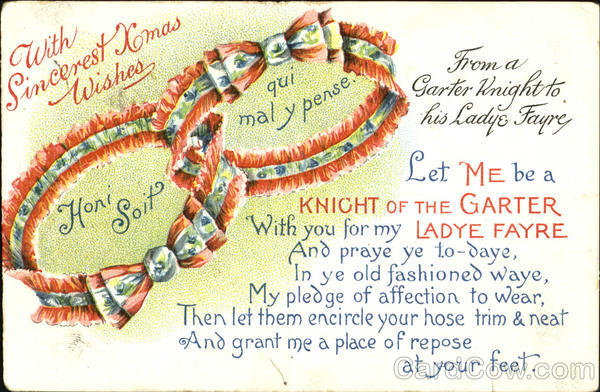 With
Sincerest Xmas
Wishes
Honi
Soit
qui
mal y pense.
From a
Garter Knight to
his Ladye Fayre,
Let ME be a
KNIGHT OF THE GARTER
With you for my LADYE FAYRE
And praye ye to-daye,
In ye old fashioned waye,
My pledge of affection to wear,
Then let them encircle your hose trim & neat
And grant me a place of repose
at your feet.
CardCow.com